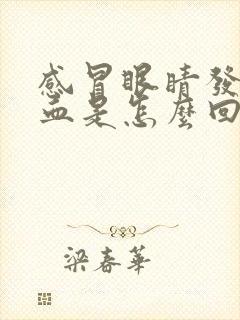 感冒眼睛發
血是怎麼回
梁春華